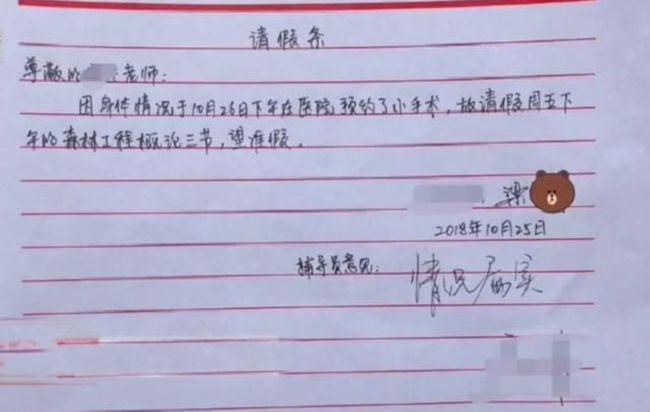 请假条
尊敬的 老师:
因身体情况于10月26日下午在医院预约了小手术,故请假周五下
午的森林工程概论三节,望准假。
梁
2018年10月25日
辅导员意见:
情况属实